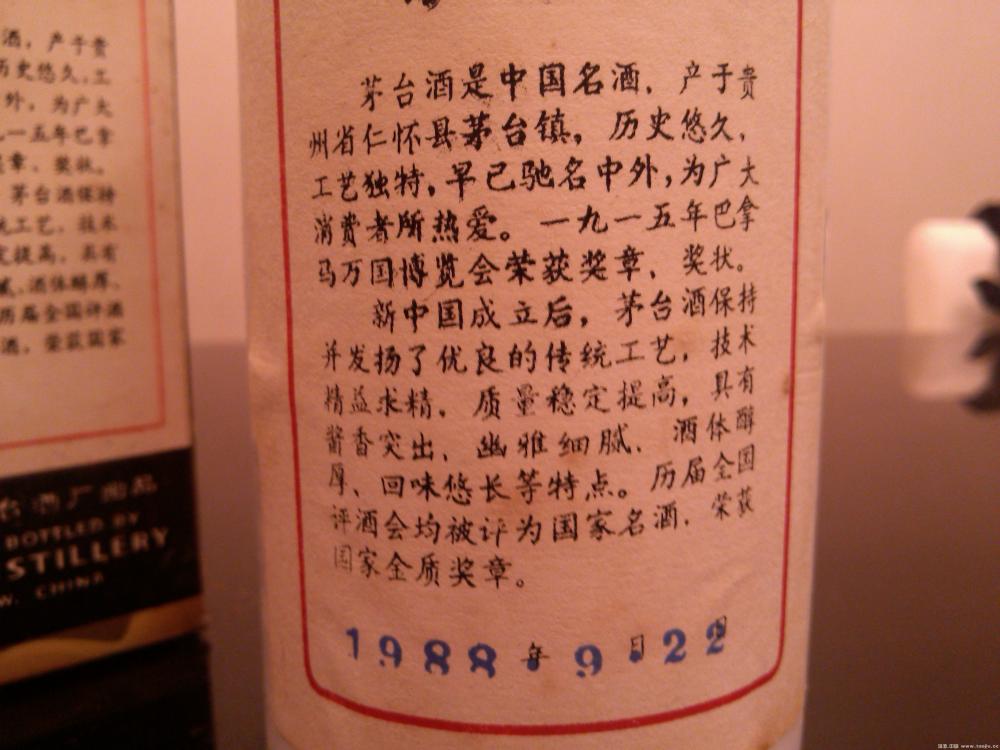 茅台酒是中国名酒，产于贵
州省仁怀县茅台镇，历史悠久，
工艺独特，早已驰名中外，为广大
消费者所热爱。一九一五年巴拿
马万国博览会荣获奖章、奖状。
新中国成立后，茅台酒保持
并发扬了优良的传统工艺，技术
精益求精，质量稳定提高，具有
酱香突出、幽雅细腻、酒体醇
厚、回味悠长等特点。历届全国
评酒会均被评为国家名酒，荣获
国家金质奖章。
1988年9月22日
酒，产于贵
历史悠久，工
外，为广大
一五年巴拿
章、奖状。
茅台酒保持
统工艺，技术
定提高，具有
腻、酒体醇厚、
历届全国评酒
酒，荣获国家
台酒厂出品
BOTTLED BY
STILLERY
W. CHINA